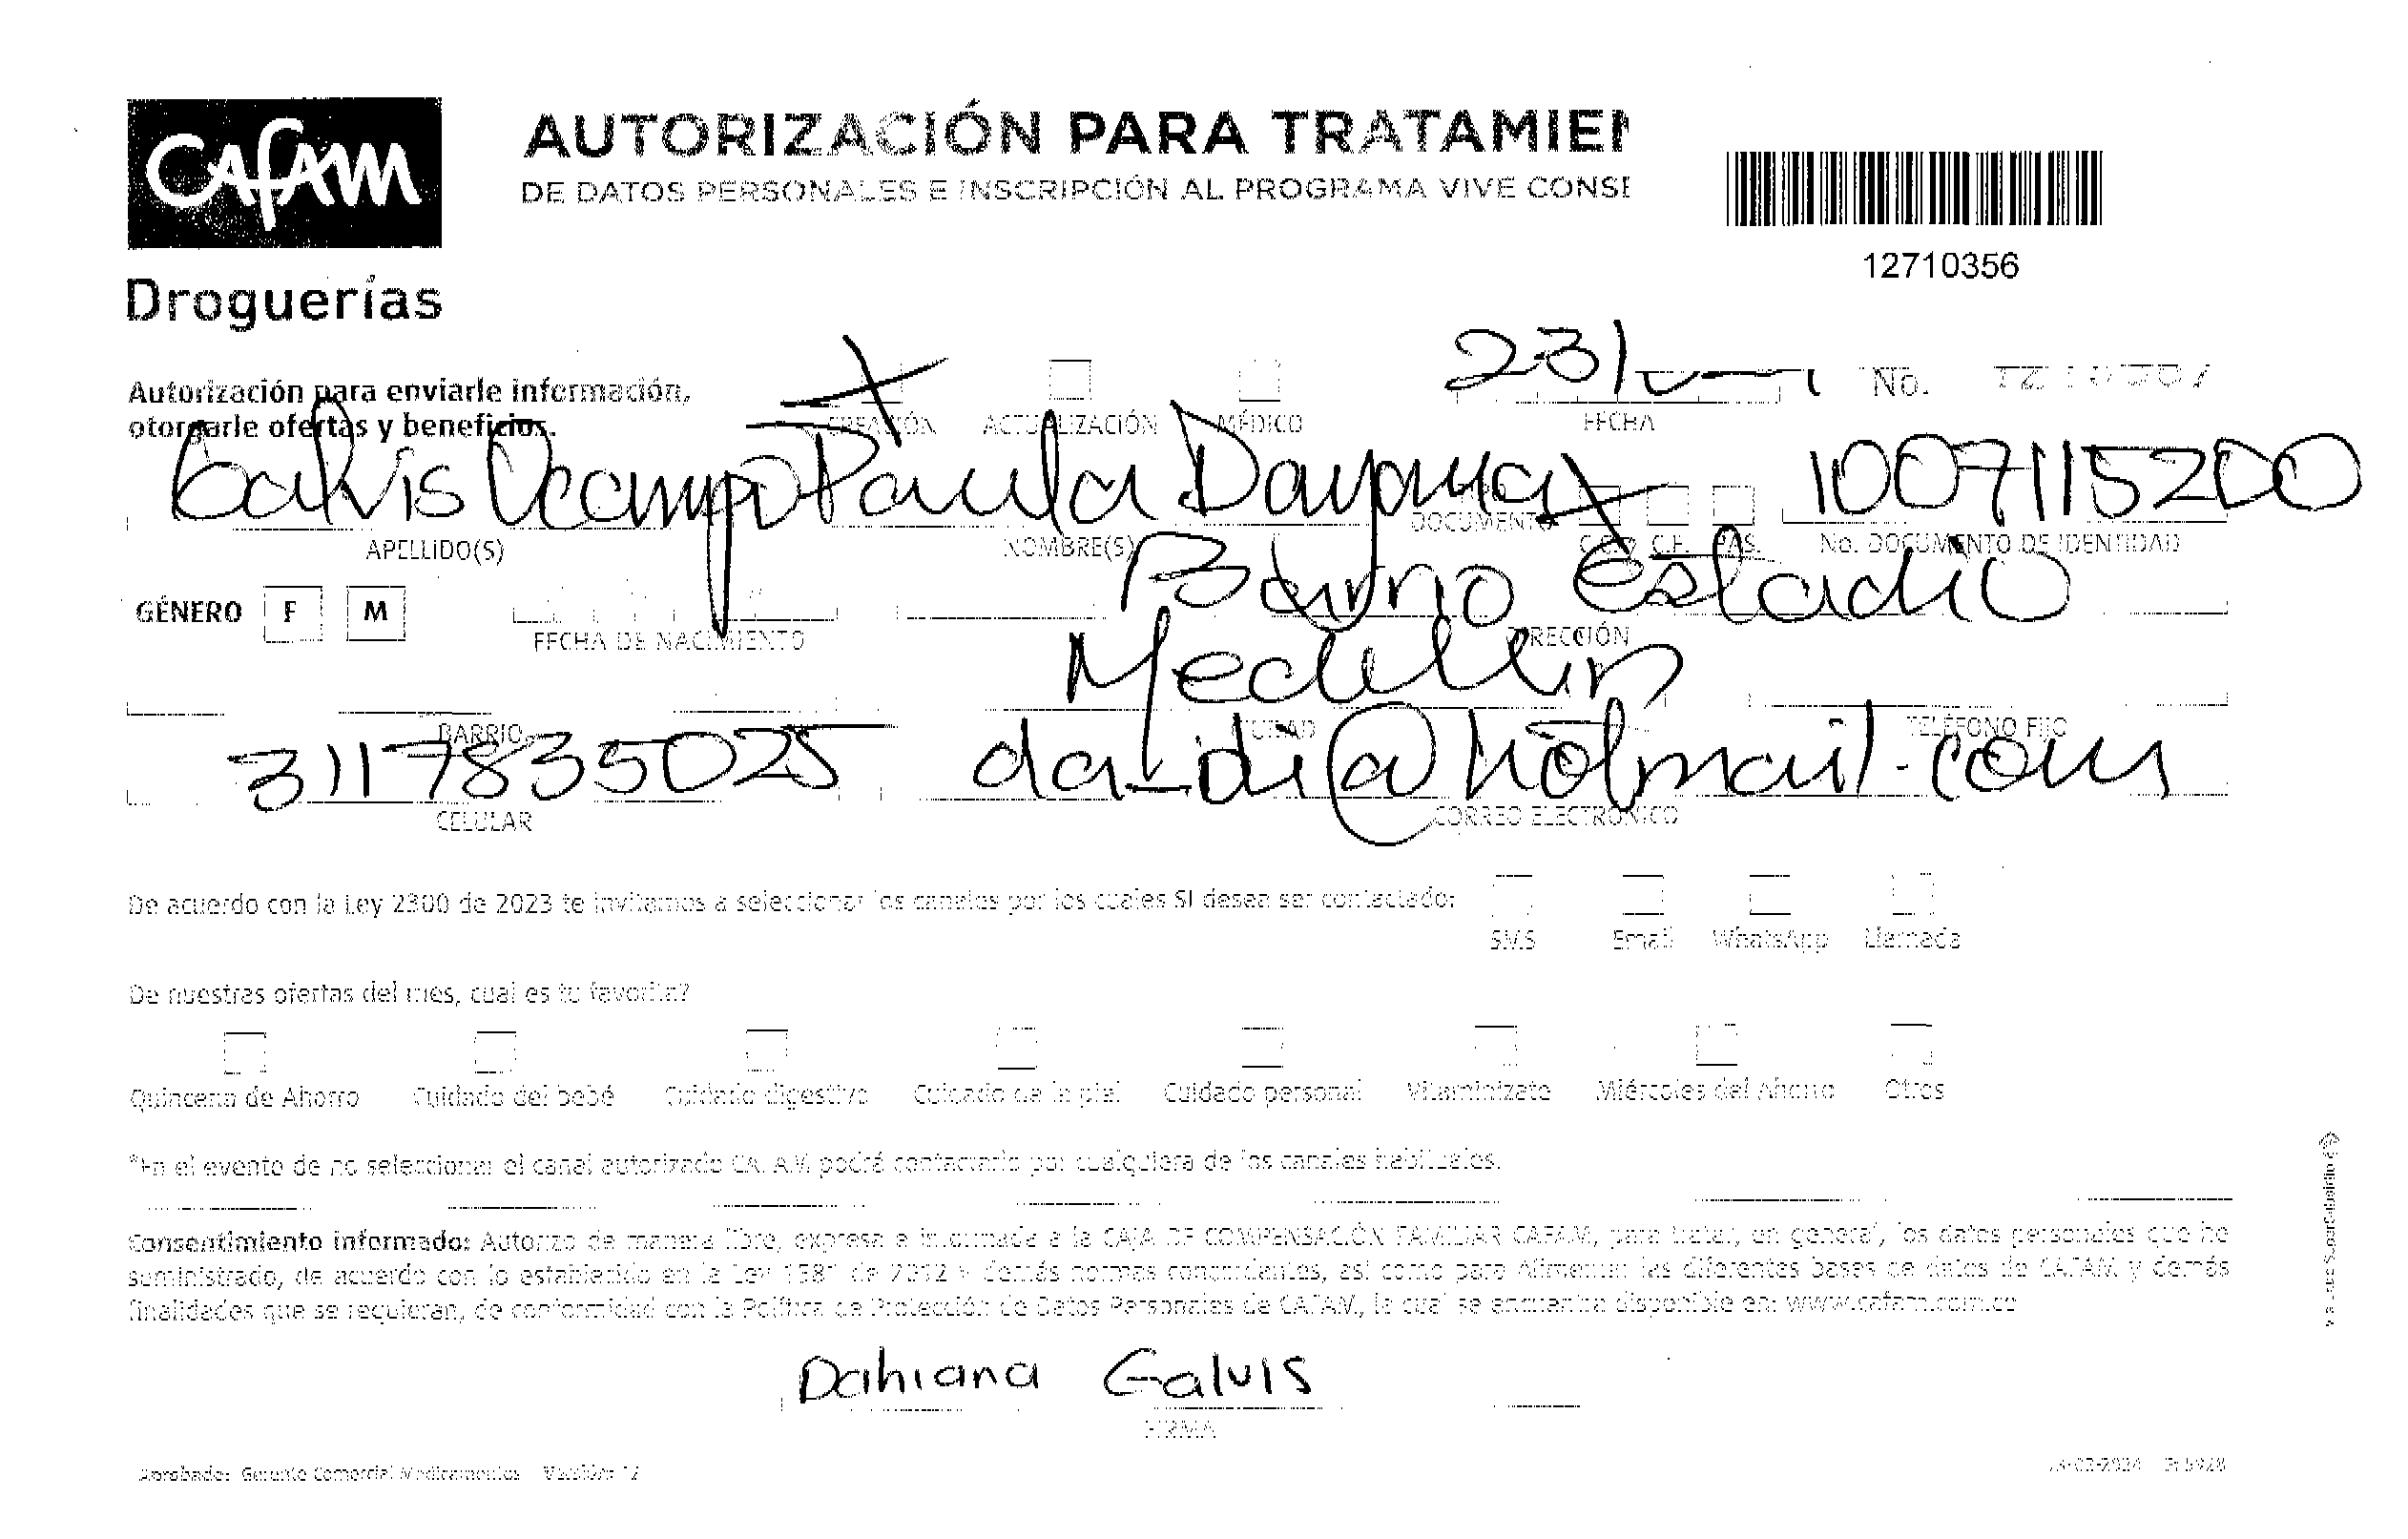 CAFAM
Droguerías
AUTORIZACIÓN PARA TRATAMIEN
DE DATOS PERSONALES E INSCRIPCIÓN AL PROGRAMA VIVE CONSE
12710356
Autorización para enviarle información,
otorgarle ofertas y beneficios.
CREACIÓN ACTUALIZACIÓN MÉDICO
23/ FECHA
No.
Galvis Ocampo Paula Dayana 1007115200
APELLIDO(S) NOMBRE(S) DOCUMENTO C.C. C.E. PAS. No. DOCUMENTO DE IDENTIDAD
GÉNERO F M Barrio Estadio
FECHA DE NACIMIENTO DIRECCIÓN
Medellin
BARRIO CIUDAD TELÉFONO FIJO
3117835025 da_di@hotmail.com
CELULAR CORREO ELECTRÓNICO
De acuerdo con la Ley 2300 de 2023 te invitamos a seleccionar los canales por los cuales SI desea ser contactado:
SMS Email WhatsApp Llamada
De nuestras ofertas del mes, cual es tu favorita?
Quincena de Ahorro Cuidado del bebé Cuidado digestivo Cuidado de la piel Cuidado personal Vitaminízate Miércoles del Ahorro Otros
*En el evento de no seleccionar el canal autorizado CAFAM podrá contactarlo por cualquiera de los canales habituales.
Consentimiento informado: Autorizo de manera libre, expresa e informada a la CAJA DE COMPENSACIÓN FAMILIAR CAFAM, para tratar, en general, los datos personales que he
suministrado, de acuerdo con lo establecido en la Ley 1581 de 2012 y demás normas concordantes, así como para Alimentar las diferentes bases de datos de CAFAM y demás
finalidades que se requieran, de conformidad con la Política de Protección de Datos Personales de CAFAM, la cual se encuentra disponible en: www.cafam.com.co
Dahiana Galvis
FIRMA
Aprobado: Gerente Comercial Medicamentos Versión: 12